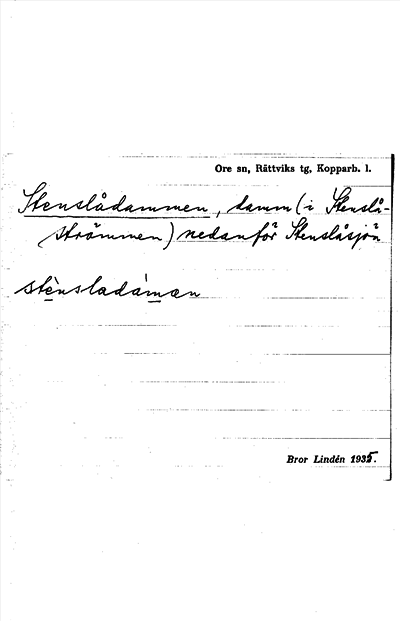 Ore sn, Rättviks tg, Kopparb. l.
Stenslådammen, damm (i Stenslå-
strömmen) nedanför Stenslåsjön
stènsladámæn
Bror Lindén 1935.